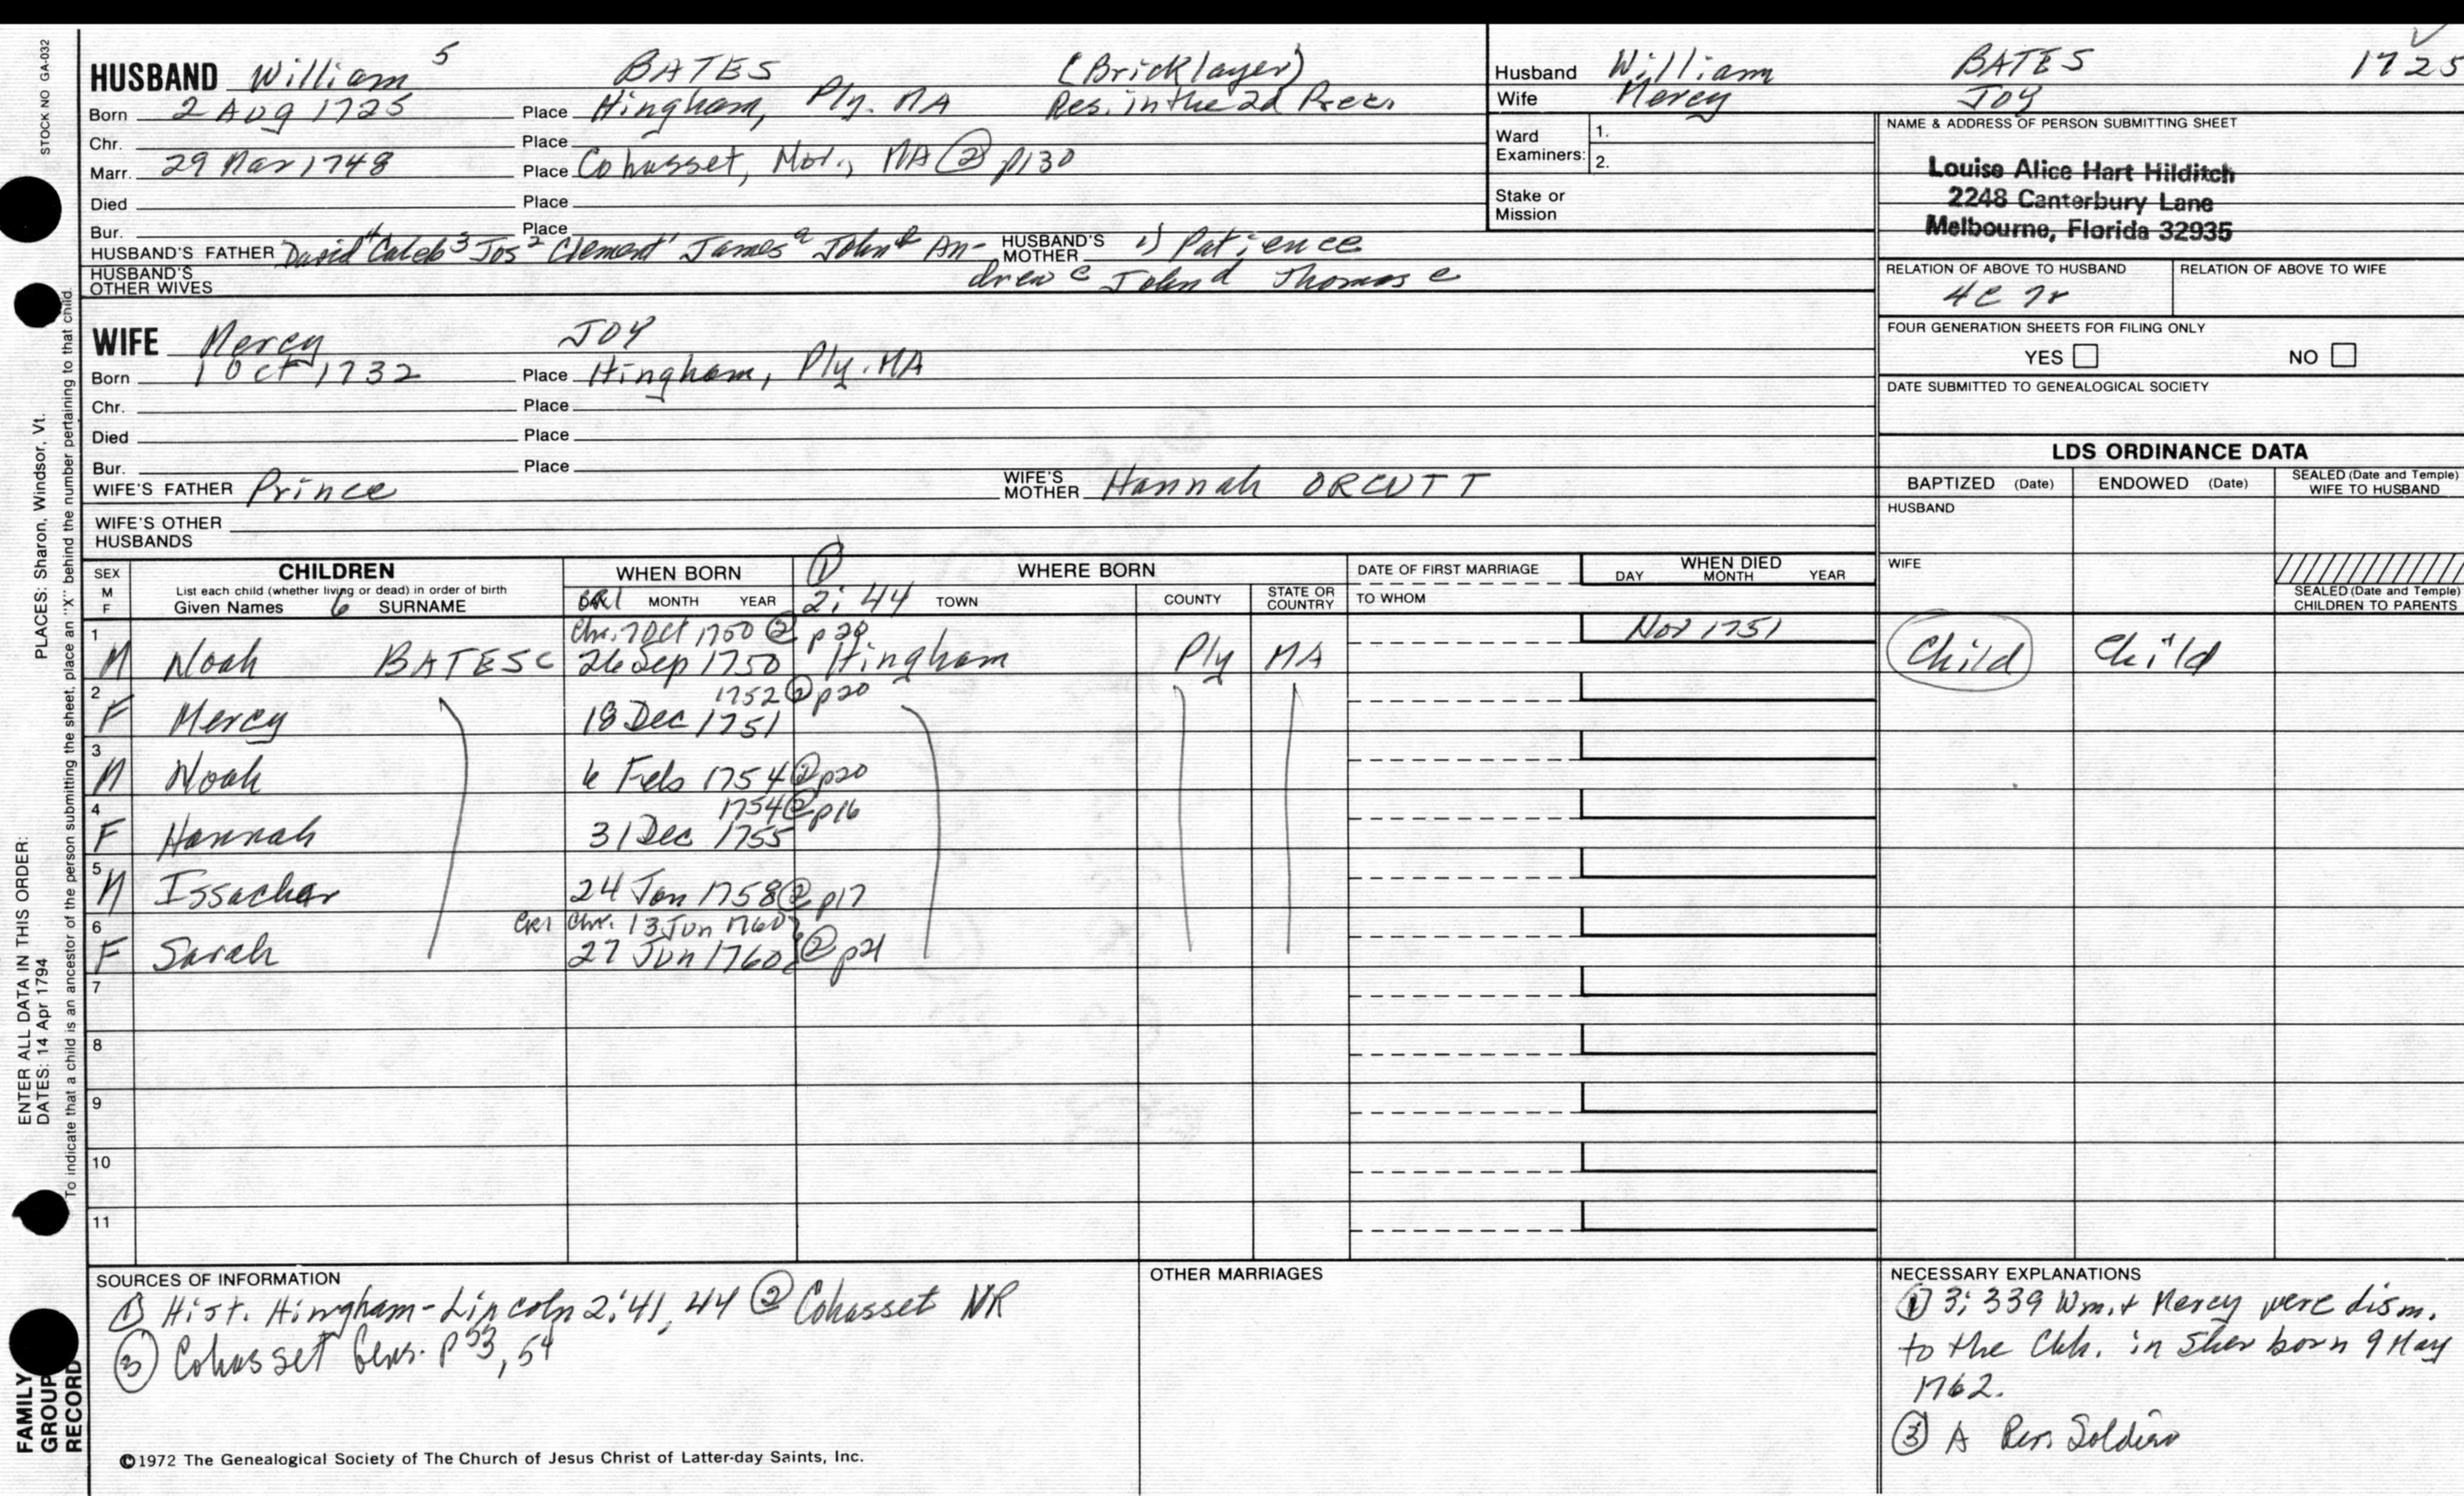 STOCK NO GA-032
HUSBAND William 5 BATES (Bricklayer)
Born 2 Aug 1725 Place Hingham, Ply. MA Res. in the 2d Prec.
Chr. Place
Marr. 29 Mar 1748 Place Cohasset, Nor., MA ② p130
Died Place
Bur. Place
HUSBAND'S FATHER David 4 Caleb 3 Jos 2 Clement 1 James a John b An- HUSBAND'S MOTHER 1) Patience
HUSBAND'S OTHER WIVES drew c John d Thomas e
Husband William BATES 1725
Wife Mercy JOY
Ward Examiners: 1.
2.
Stake or Mission
NAME & ADDRESS OF PERSON SUBMITTING SHEET
Louise Alice Hart Hilditch
2248 Canterbury Lane
Melbourne, Florida 32935
RELATION OF ABOVE TO HUSBAND RELATION OF ABOVE TO WIFE
4C 7r
FOUR GENERATION SHEETS FOR FILING ONLY
YES NO
DATE SUBMITTED TO GENEALOGICAL SOCIETY
WIFE Mercy JOY
Born 1 Oct 1732 Place Hingham, Ply. MA
Chr. Place
Died Place
Bur. Place
WIFE'S FATHER Prince WIFE'S MOTHER Hannah ORCUTT
WIFE'S OTHER HUSBANDS
LDS ORDINANCE DATA
BAPTIZED (Date) ENDOWED (Date) SEALED (Date and Temple) WIFE TO HUSBAND
HUSBAND
WIFE
SEALED (Date and Temple) CHILDREN TO PARENTS
SEX M F
CHILDREN
List each child (whether living or dead) in order of birth
Given Names 6 SURNAME
WHEN BORN
MONTH YEAR
① WHERE BORN
2: 44 TOWN COUNTY STATE OR COUNTRY
DATE OF FIRST MARRIAGE
TO WHOM
WHEN DIED
DAY MONTH YEAR
1 Chr. 7 Oct 1750 ② p20 Nov 1751
M Noah BATES C 26 Sep 1750 Hingham Ply MA Child Child
2 1752 ② p20
F Mercy 18 Dec 1751
3
M Noah 6 Feb 1754 ② p20
4 1754 ② p16
F Hannah 31 Dec 1755
5
M Issachar 24 Jan 1758 ② p17
6 CR1 Chr. 13 Jun 1760
F Sarah 27 Jun 1760 ② p21
7
8
9
10
11
SOURCES OF INFORMATION
① Hist. Hingham - Lincoln 2:41, 44 ② Cohasset VR
③ Cohasset Gens. p 53, 54
OTHER MARRIAGES
NECESSARY EXPLANATIONS
① 3: 339 Wm. + Mercy were dism.
to the Chh. in Sherborn 9 May
1762.
③ A Rev. Soldier
©1972 The Genealogical Society of The Church of Jesus Christ of Latter-day Saints, Inc.
ENTER ALL DATA IN THIS ORDER:
DATES: 14 Apr 1794
PLACES: Sharon, Windsor, Vt.
To indicate that a child is an ancestor of the person submitting the sheet, place an "X" behind the number pertaining to that child.
FAMILY
GROUP
RECORD